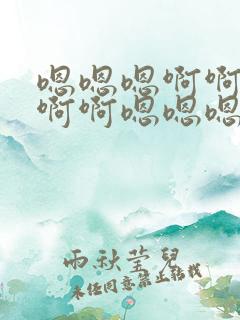 嗯嗯嗯啊啊
啊啊嗯嗯嗯
雨秋莹儿
未经同意禁止转载